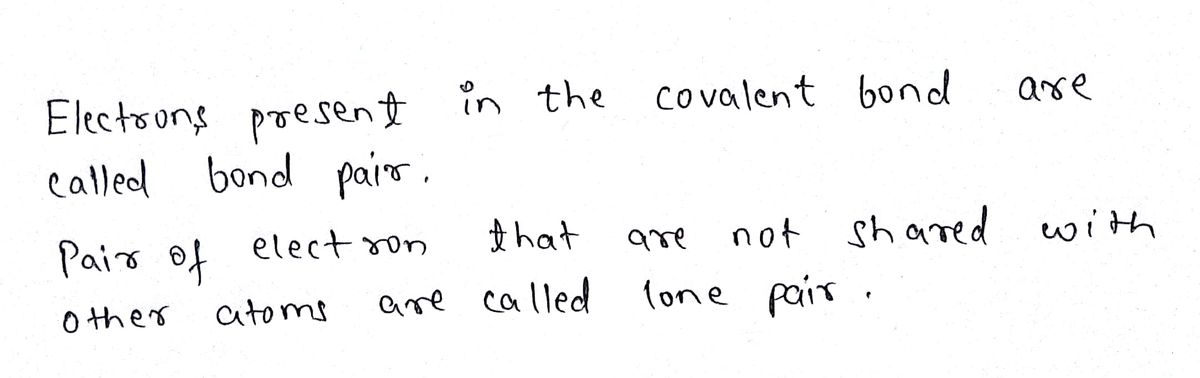 Electrons present in the covalent bond are
called bond pair.
Pair of electron that are not shared with
other atoms are called lone pair.